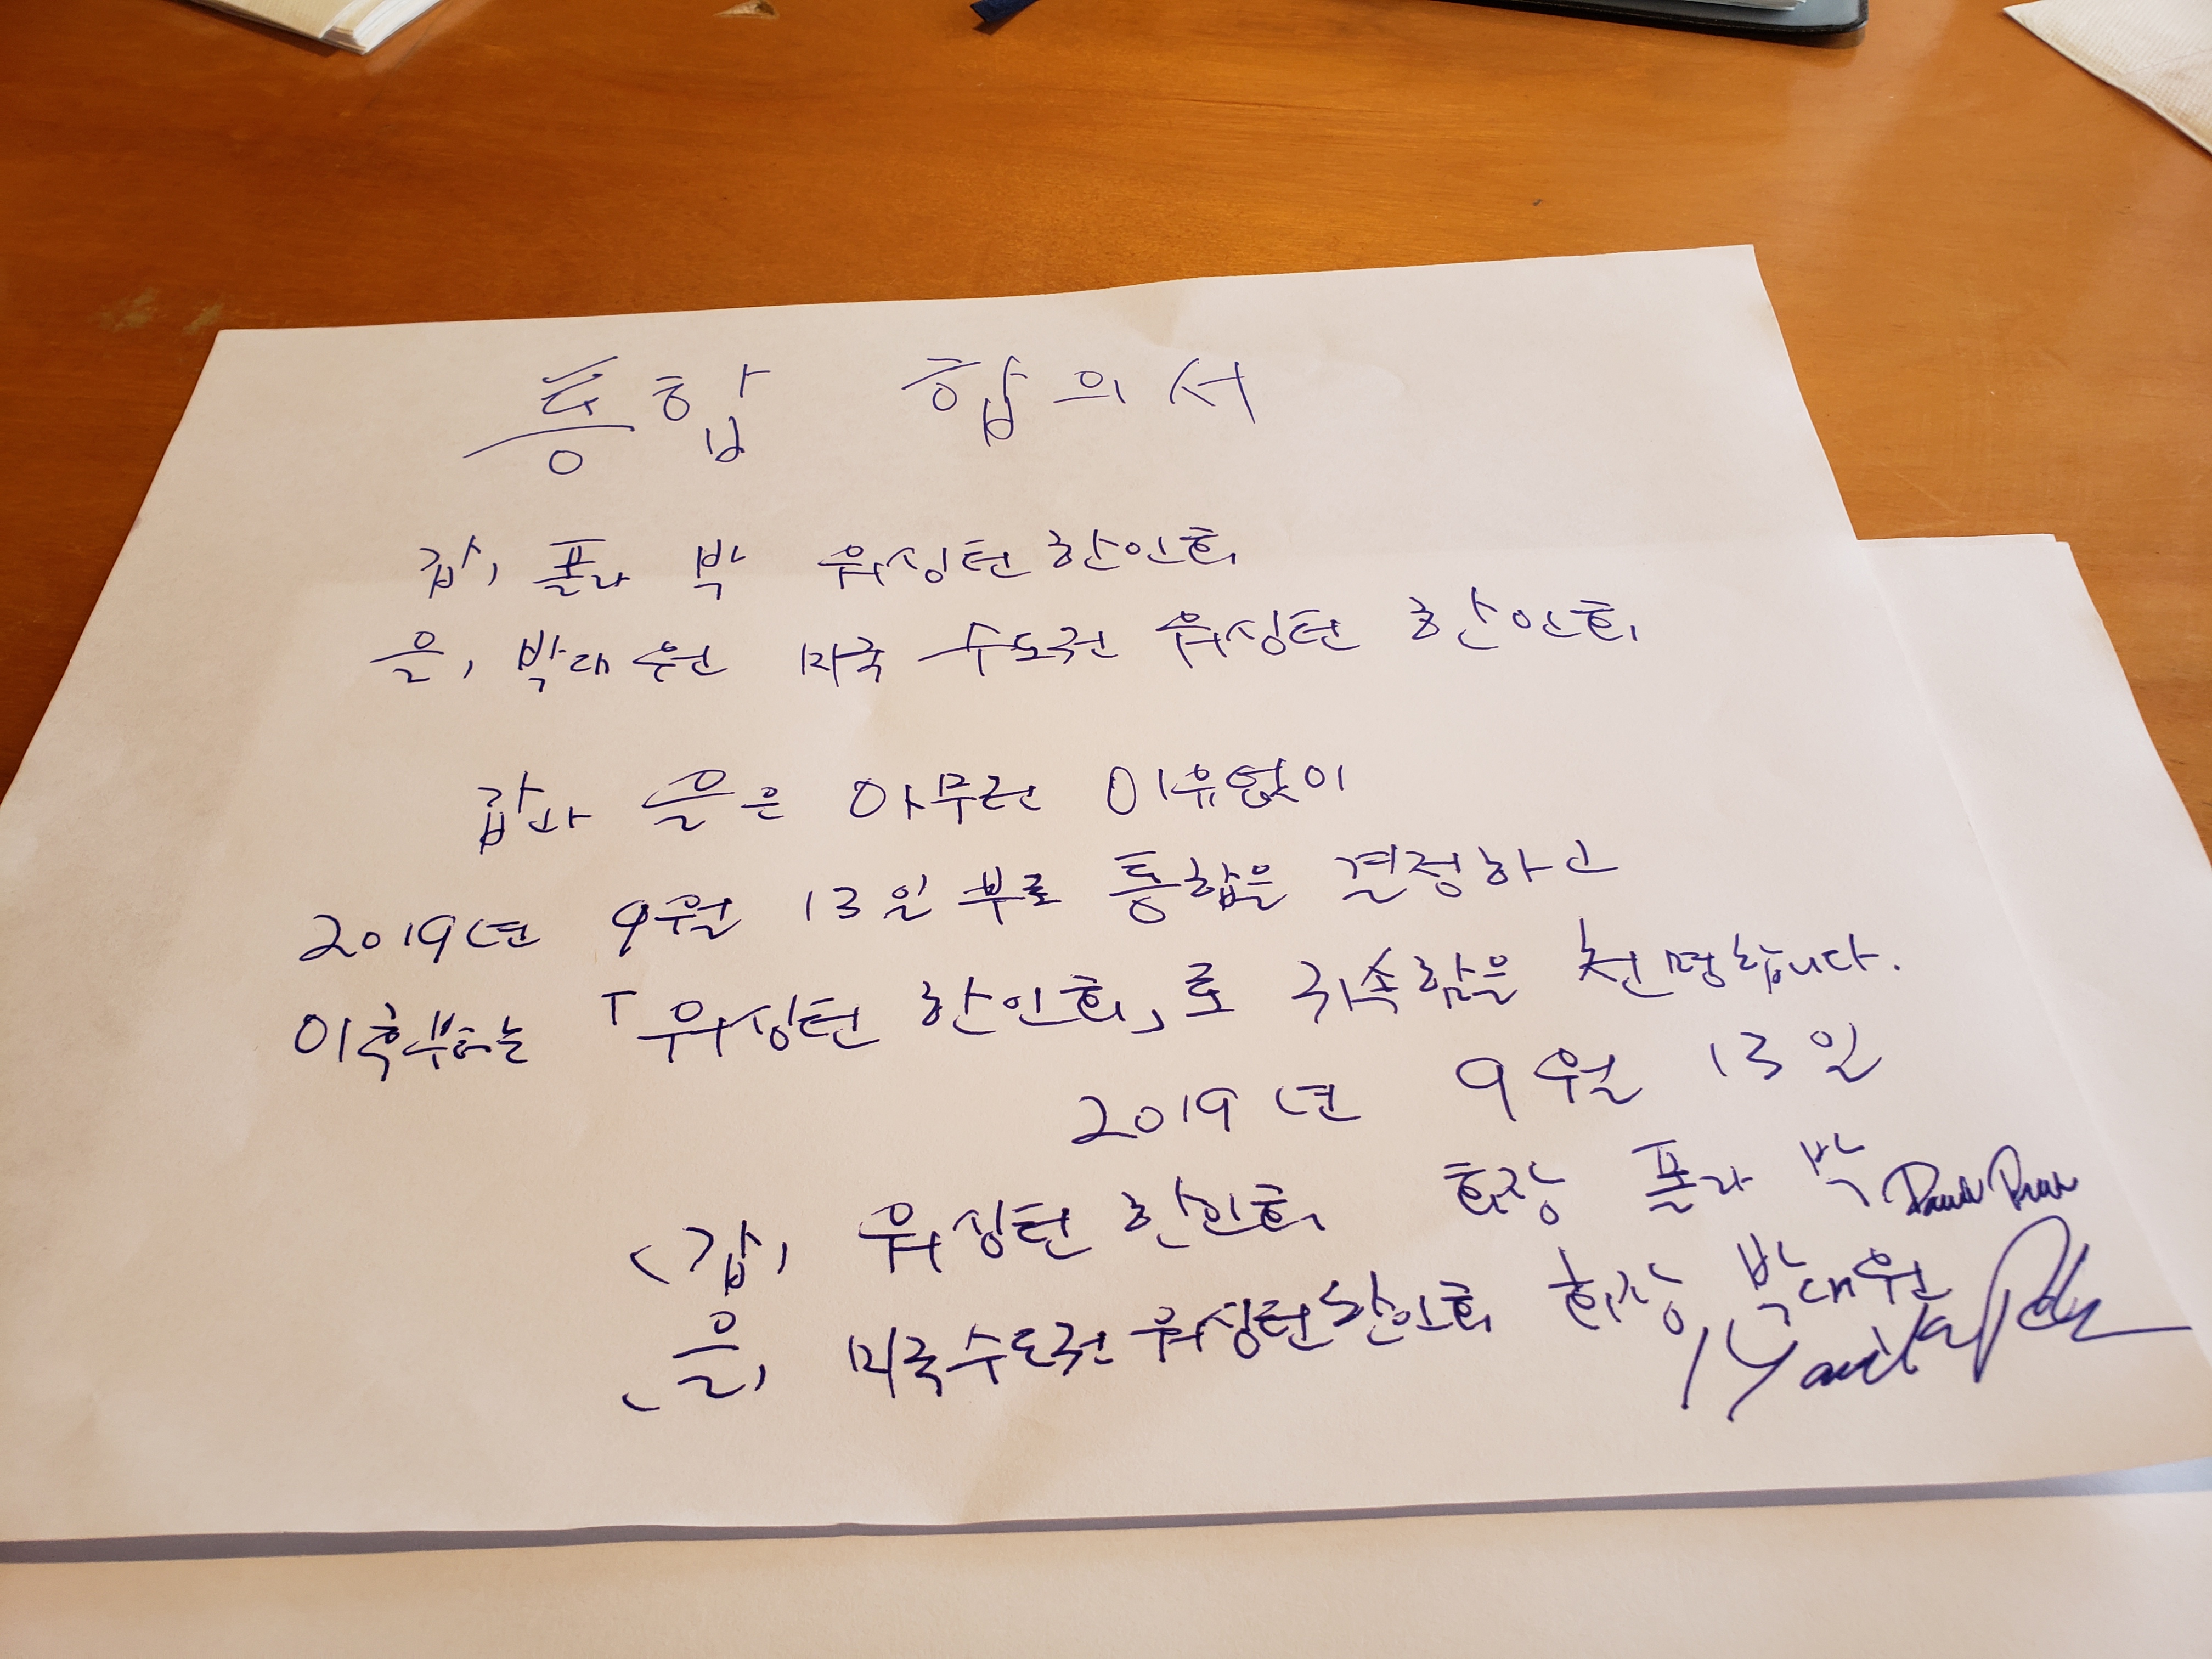 통합 합의서
갑, 폴라 박 워싱턴 한인회
을, 박대원 미국 수도권 워싱턴 한인회
갑과 을은 아무런 이유없이
2019년 9월 13일 부로 통합을 결정하고
이후부터는 「워싱턴 한인회」로 귀속함을 천명합니다.
2019년 9월 13일
(갑, 워싱턴 한인회 회장 폴라 박
(을, 미국수도권 워싱턴한인회 회장 박대원